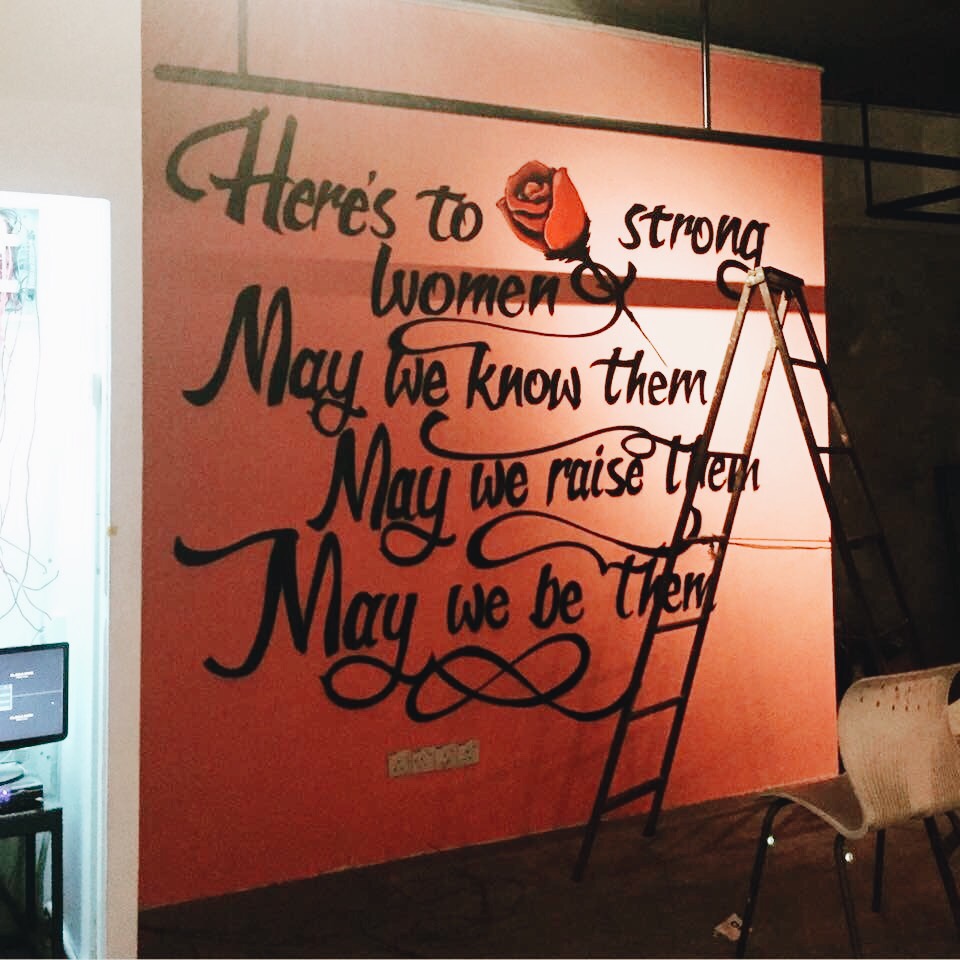 Here's to strong
women
May we know them
May we raise them
May we be them